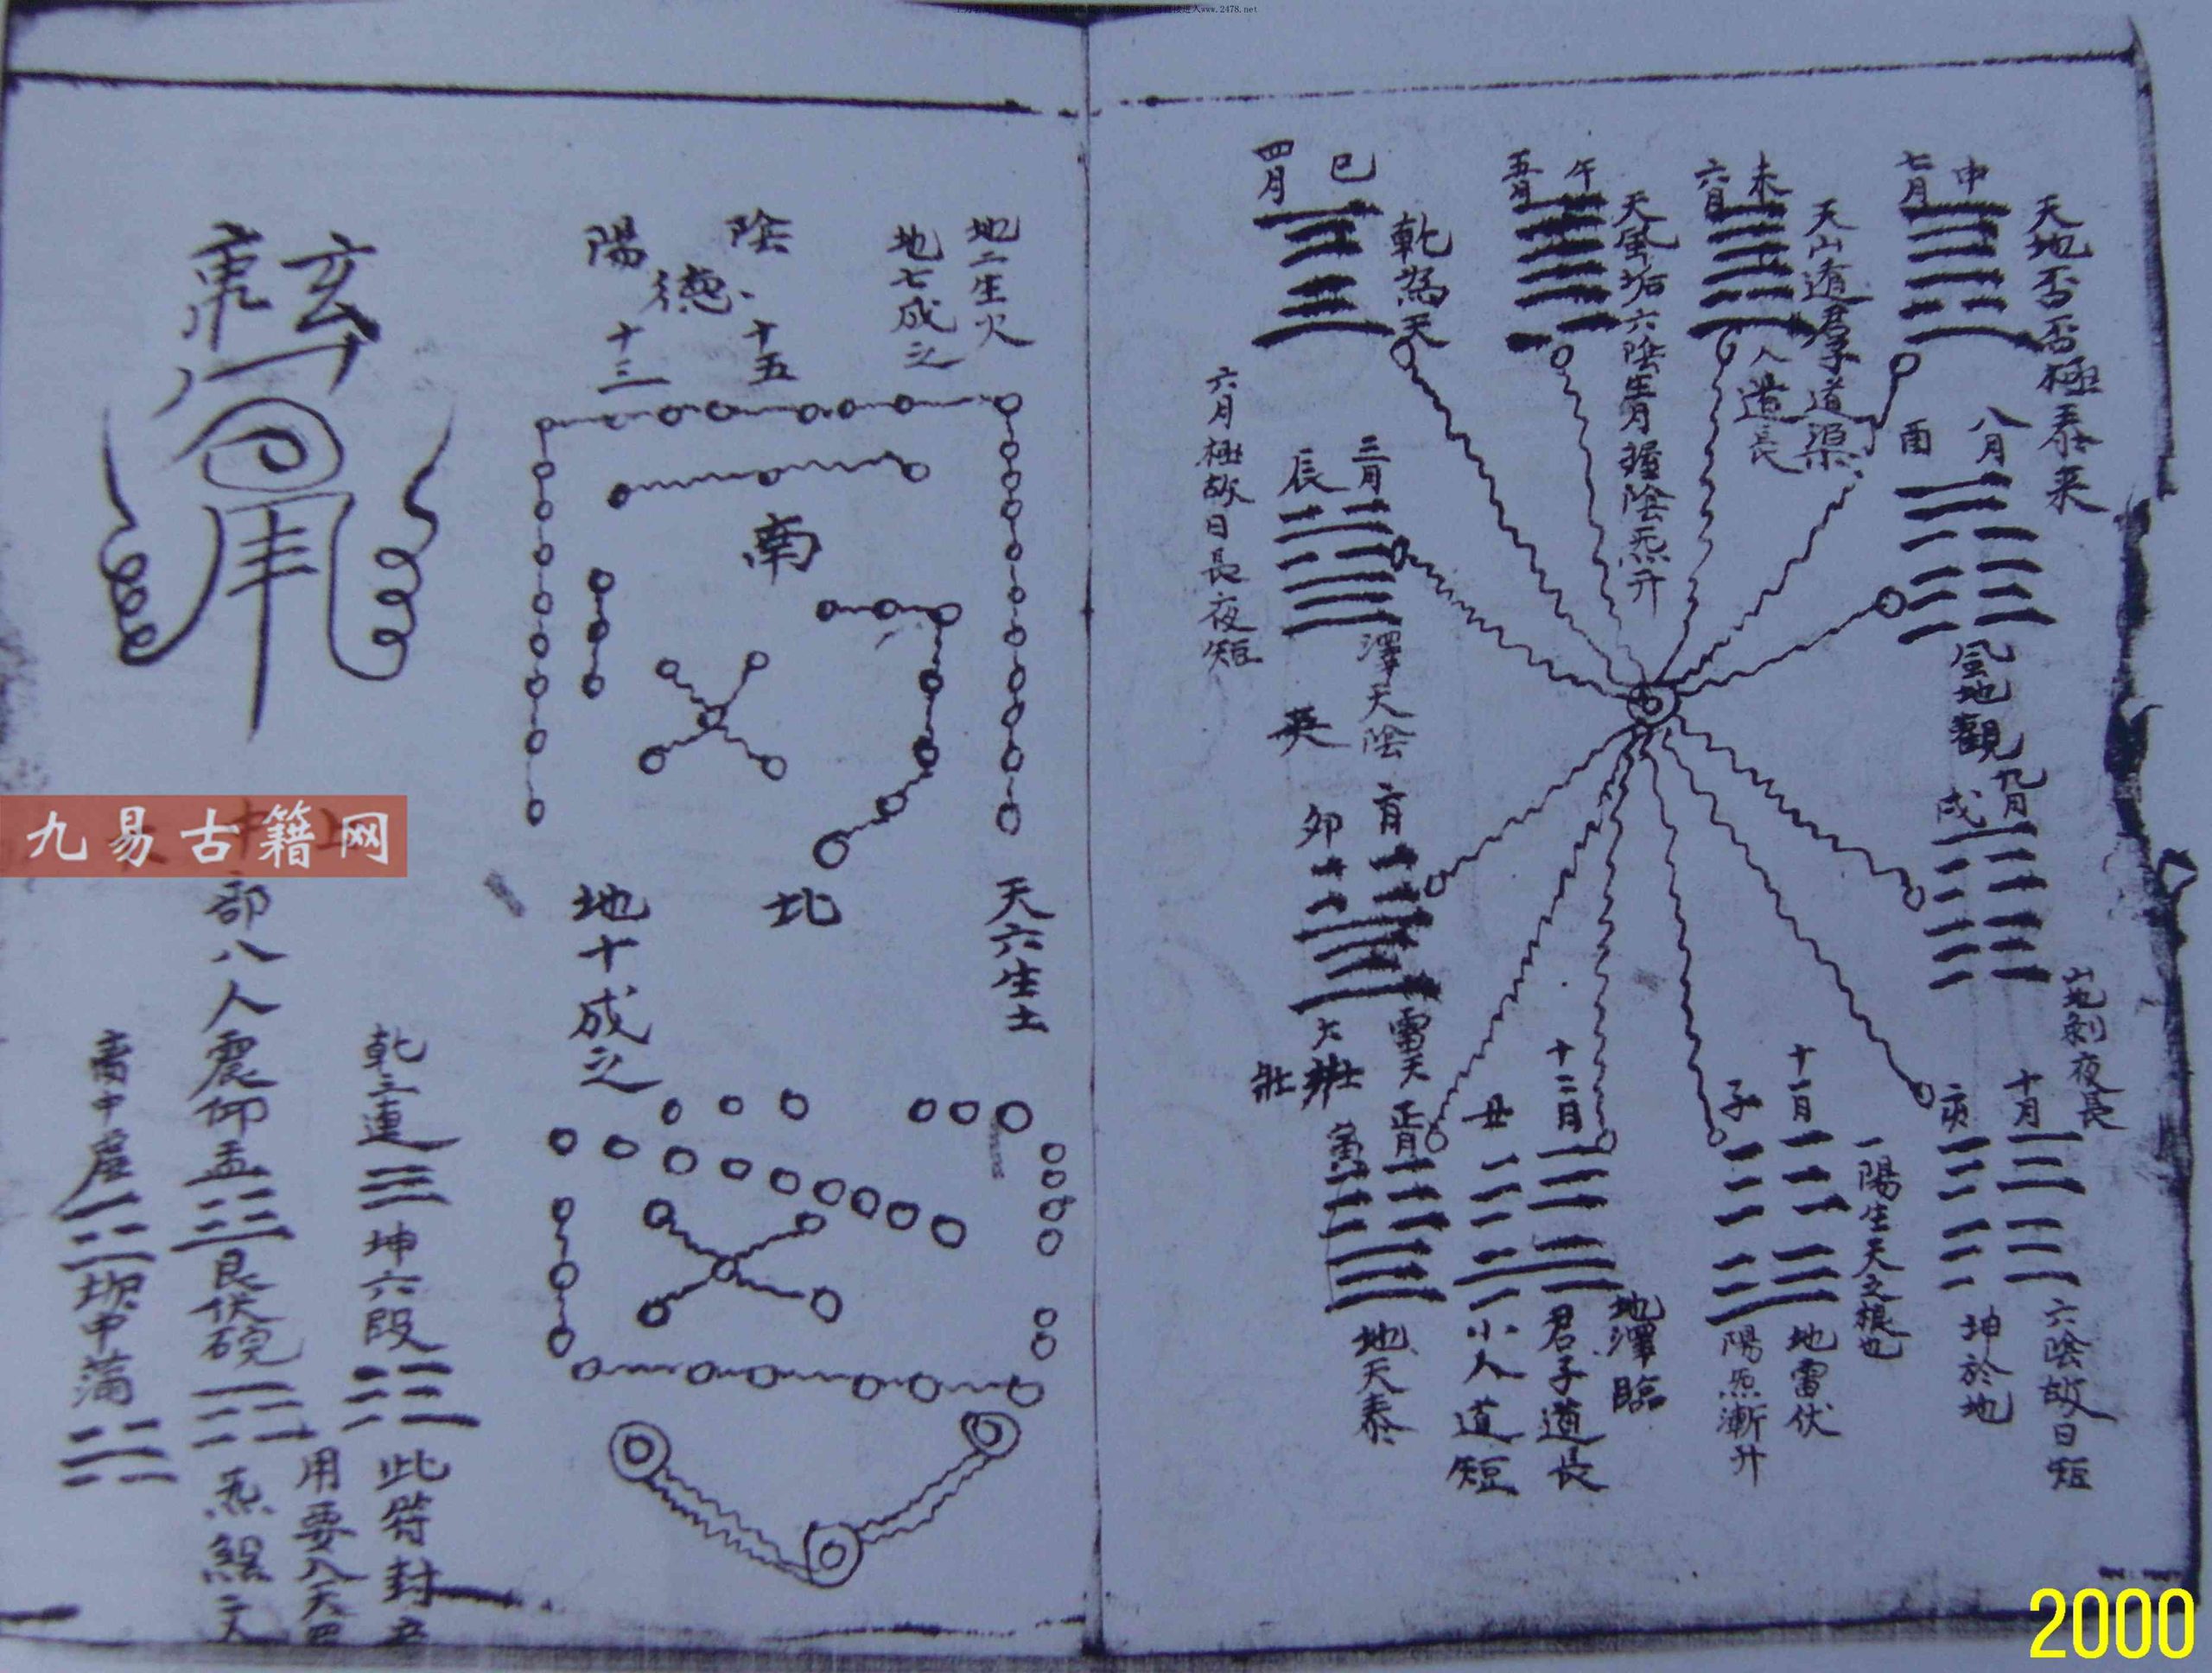 天地否否極泰來
申
七月
天山遁君子道退
人道長
未
六月
天風垢六陰生月握陰炁升
午
五月
乾為天
巳
四月
八月
酉
風地觀
九月
戌
山地剝夜長
十月
亥
六陰故日短
坤於地
一陽生天之根也
十一月
子
地雷伏
陽炁漸升
十二月
丑
地澤臨
君子道長
小人道短
正月
寅
地天泰
二月
卯
雷天
大
壯
三月
辰
澤天陰
英
六月極故日長夜短
地二生火
地七成之
陰
德
陽
十五
十三
南
北
天六生土
地十成之
乾三連
坤六段
此符封
用要入天
部八人震仰盂
艮伏碗
炁
中虛
坎中蒲
九易古籍网
www.2478.net
2000